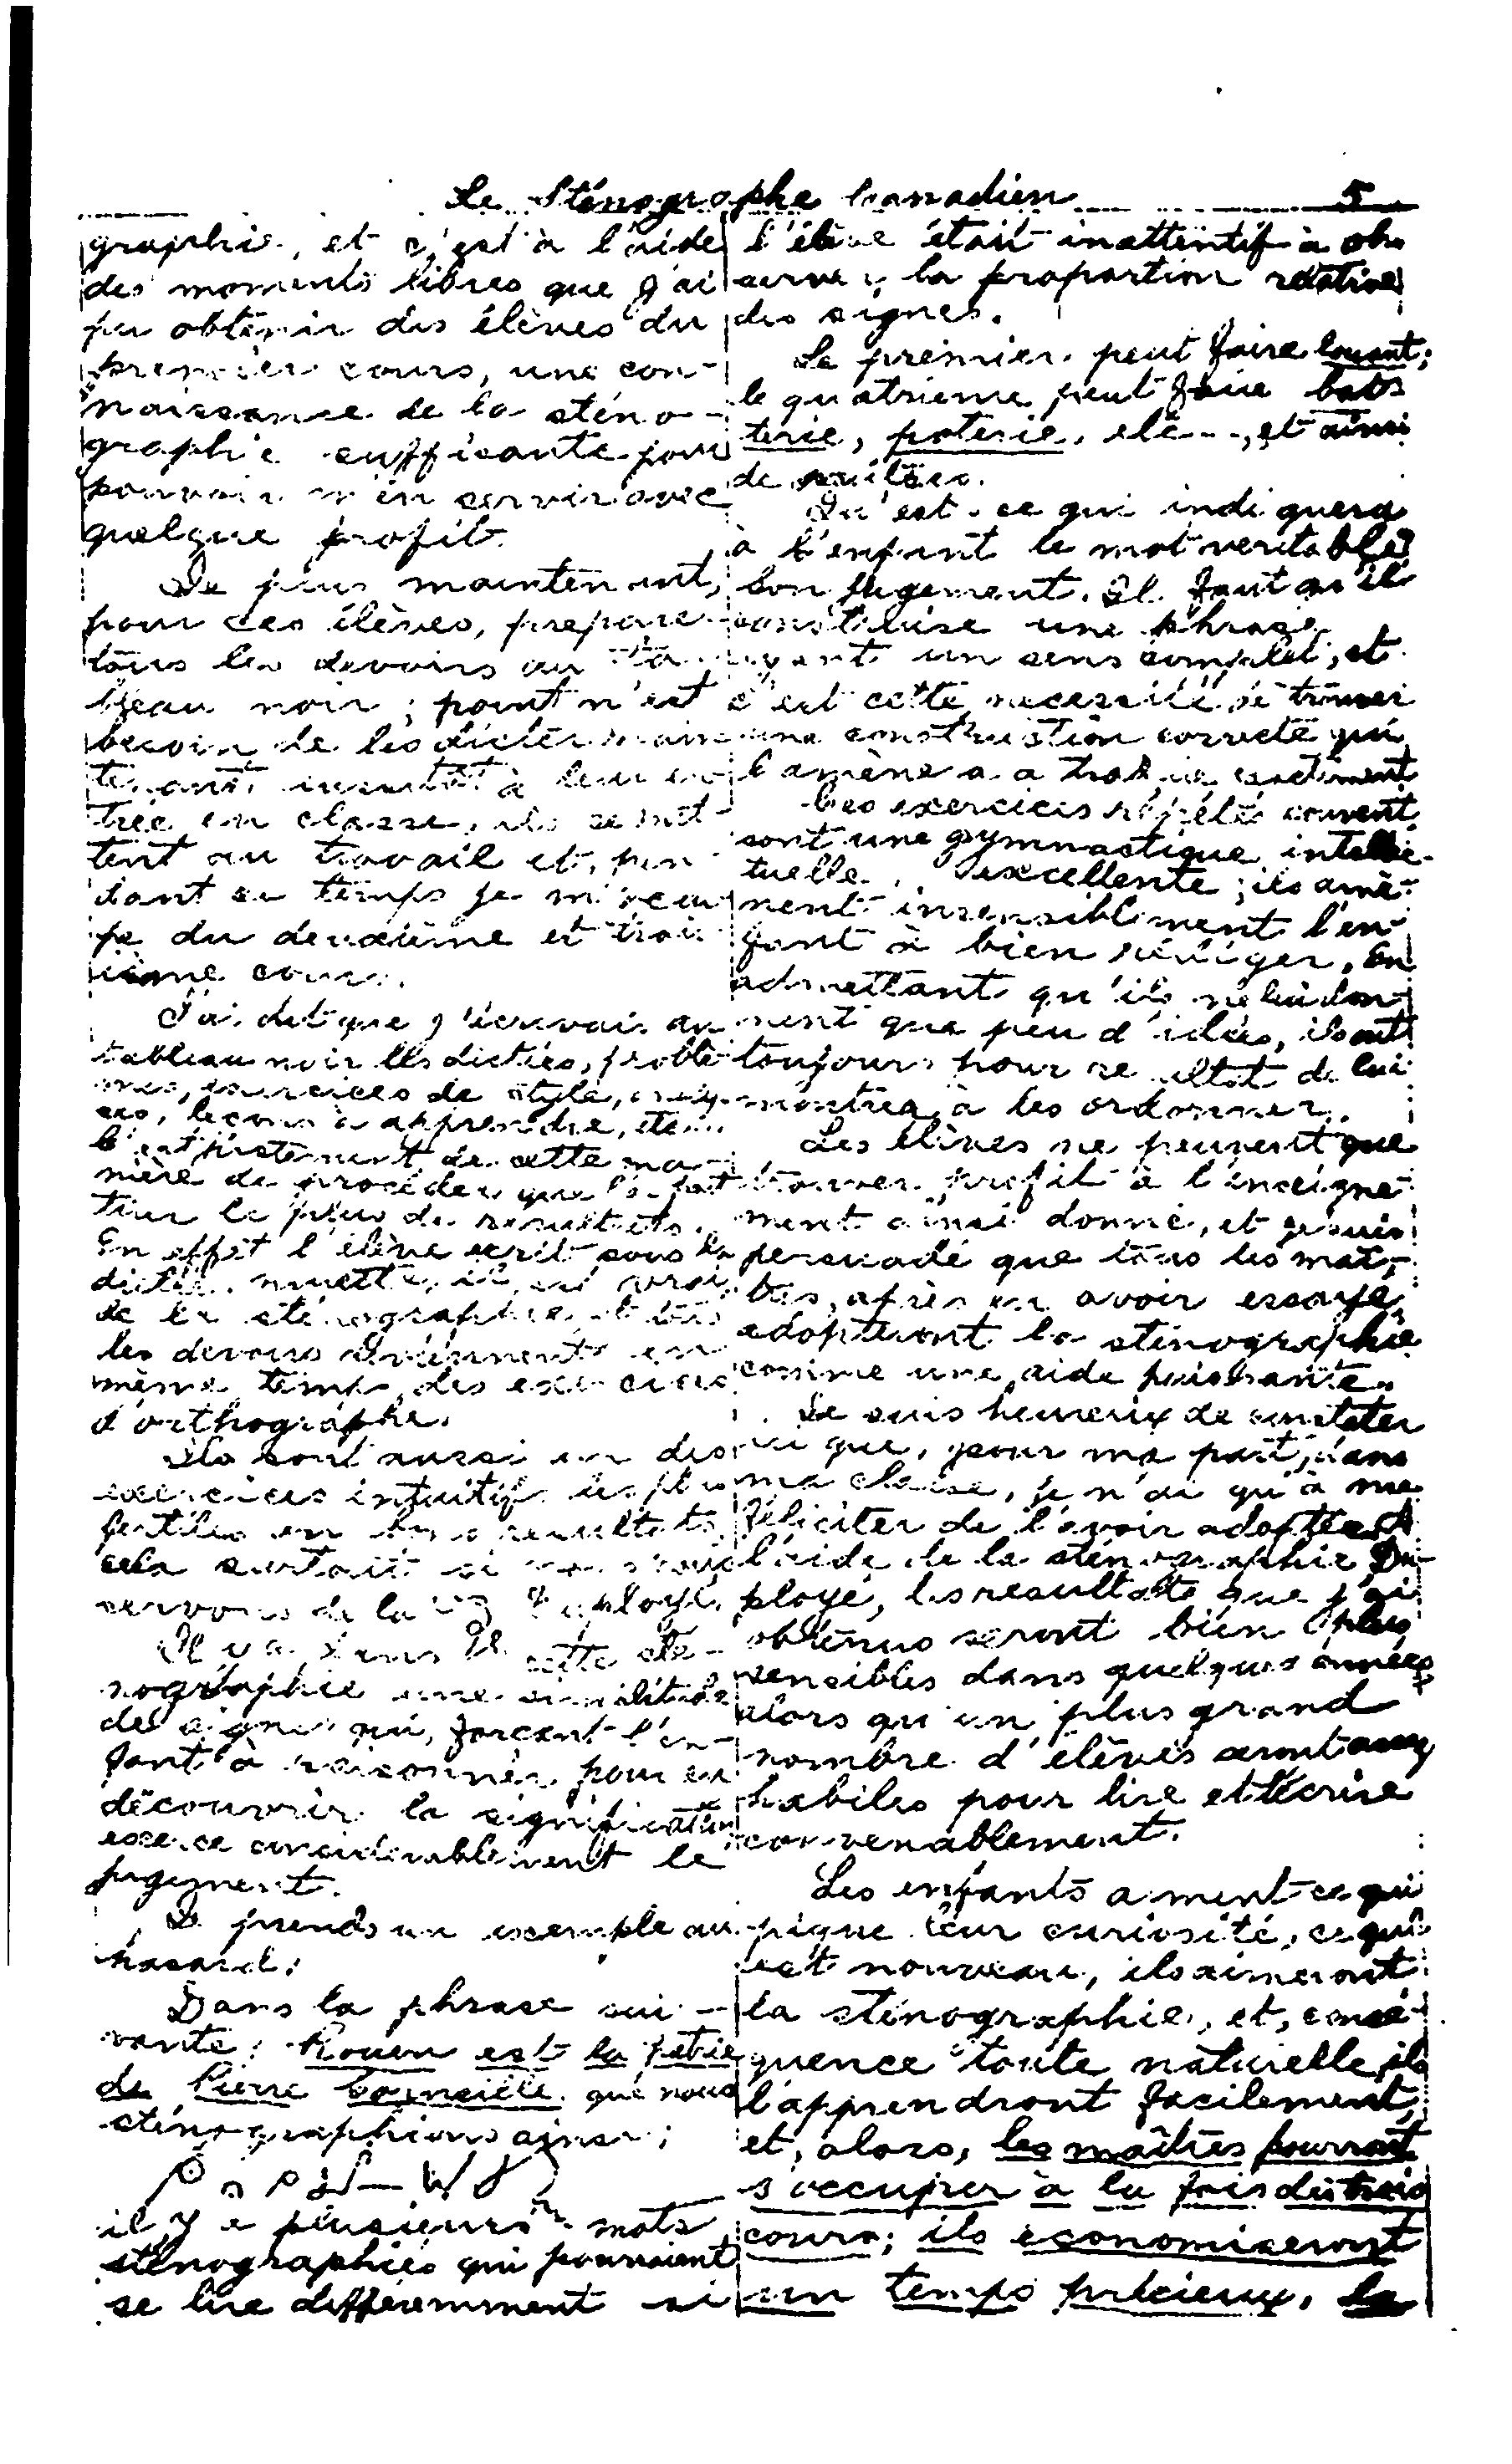 Le Sténographe Canadien 5
graphie, et c'est à l'aide
des moments libres que j'ai
pu obtenir des élèves du
premier cours, une con-
naissance de la sténo-
graphie suffisante pour
pouvoir m'en servir avec
quelque profit.
Je puis maintenant,
pour ces élèves, prepare
tous les devoirs au ta
bleau noir; point n'est
besoin de les dicter main
tenant à leur en
trée en classe, ils se met
tent au travail et, pen
dant ce temps je m'occu
pe du deuxième et troi
sième cours.
J'ai dit que j'écrivais au
tableau noir les dictées, problè
mes, exercices de style,
leçons à apprendre, etc...
C'est justement de cette ma-
nière de procéder que l'on peut
tirer le plus de resultats.
En effet l'élève ecrit sous la
dictée, muette, il est vrai,
de la sténographie et tous
les devoirs deviennent en
même temps des exercices
d'orthographe.
Ils sont aussi un des
exercices intuitifs les plus
fertiles en bons resultats
cela surtout si nous nous
servons de la Duployé.
Il y a dans cette sté-
nographie une similitude
de signes qui, forçant l'en-
fant à raisonner pour en
découvrir la signification
exerce considérablement le
jugement.
Je prends un exemple au
hasard:
Dans la phrase sui-
vante: Rouen est la patrie
de Pierre Corneille que nous
sténographions ainsi;
il y a plusieurs mots
sténographiés qui pourraient
se lire differemment si
l'élève était inattentif à ob-
server la proportion relative
des signes.
Le premier peut faire
le quatrieme peut faire bat
terie, poterie, etc--, et ainsi
de suite.
Qu'est-ce qui indiquera
à l'enfant le mot veritable?
Son jugement. Il faut qu'il
constitúe une phrase
ayant un sens complet, et
c'est cette necessité de trouver
une construction correcte qui
l'amènera a traduire exactement
Ces exercices répétés souvent
sont une gymnastique intellec-
tuelle excellente; ils amè-
nent insensiblement l'en-
fant à bien rédiger. En
admettant qu'ils ne lui don-
nent que peu d'idées, ils ont
toujours pour resultat de lui
montrer à les ordonner.
Les élèves ne peuvent que
trouver profit à l'enseigne-
ment ainsi donné, et je suis
persuadé que tous les maî-
tres, après en avoir essayé,
adopteront la sténographie
comme une aide puissante.
Je suis heureux de constater
ici que, pour ma part, dans
ma classe, je n'ai qu'à me
féliciter de l'avoir adoptée. A
l'aide de la sténographie Du-
ployé, les resultats que j'ai
obtenus seront bien plus
sensibles dans quelques années
alors qu'un plus grand
nombre d'élèves seront assez
habiles pour lire et écrire
convenablement.
Les enfants aiment ce qui
pique leur curiosité, ce qui
est nouveau, ils aimeront
la sténographie, et, consé-
quence toute naturelle, ils
l'apprendront facilement,
et, alors, les maîtres pourront
s'occuper à la fois des trois
cours; ils économiseront
un temps précieux, la